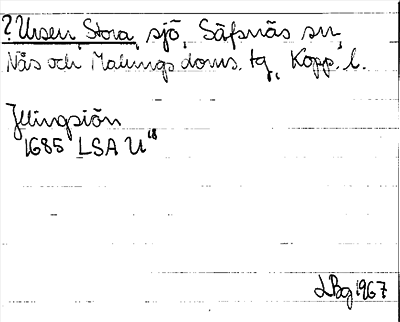 ? Ulvsen, Stora, sjö, Säfsnäs sn,
Nås och Malungs doms. tg, Kopp. l.
Jllingsiön
1685 LSA U18
LBg 1967